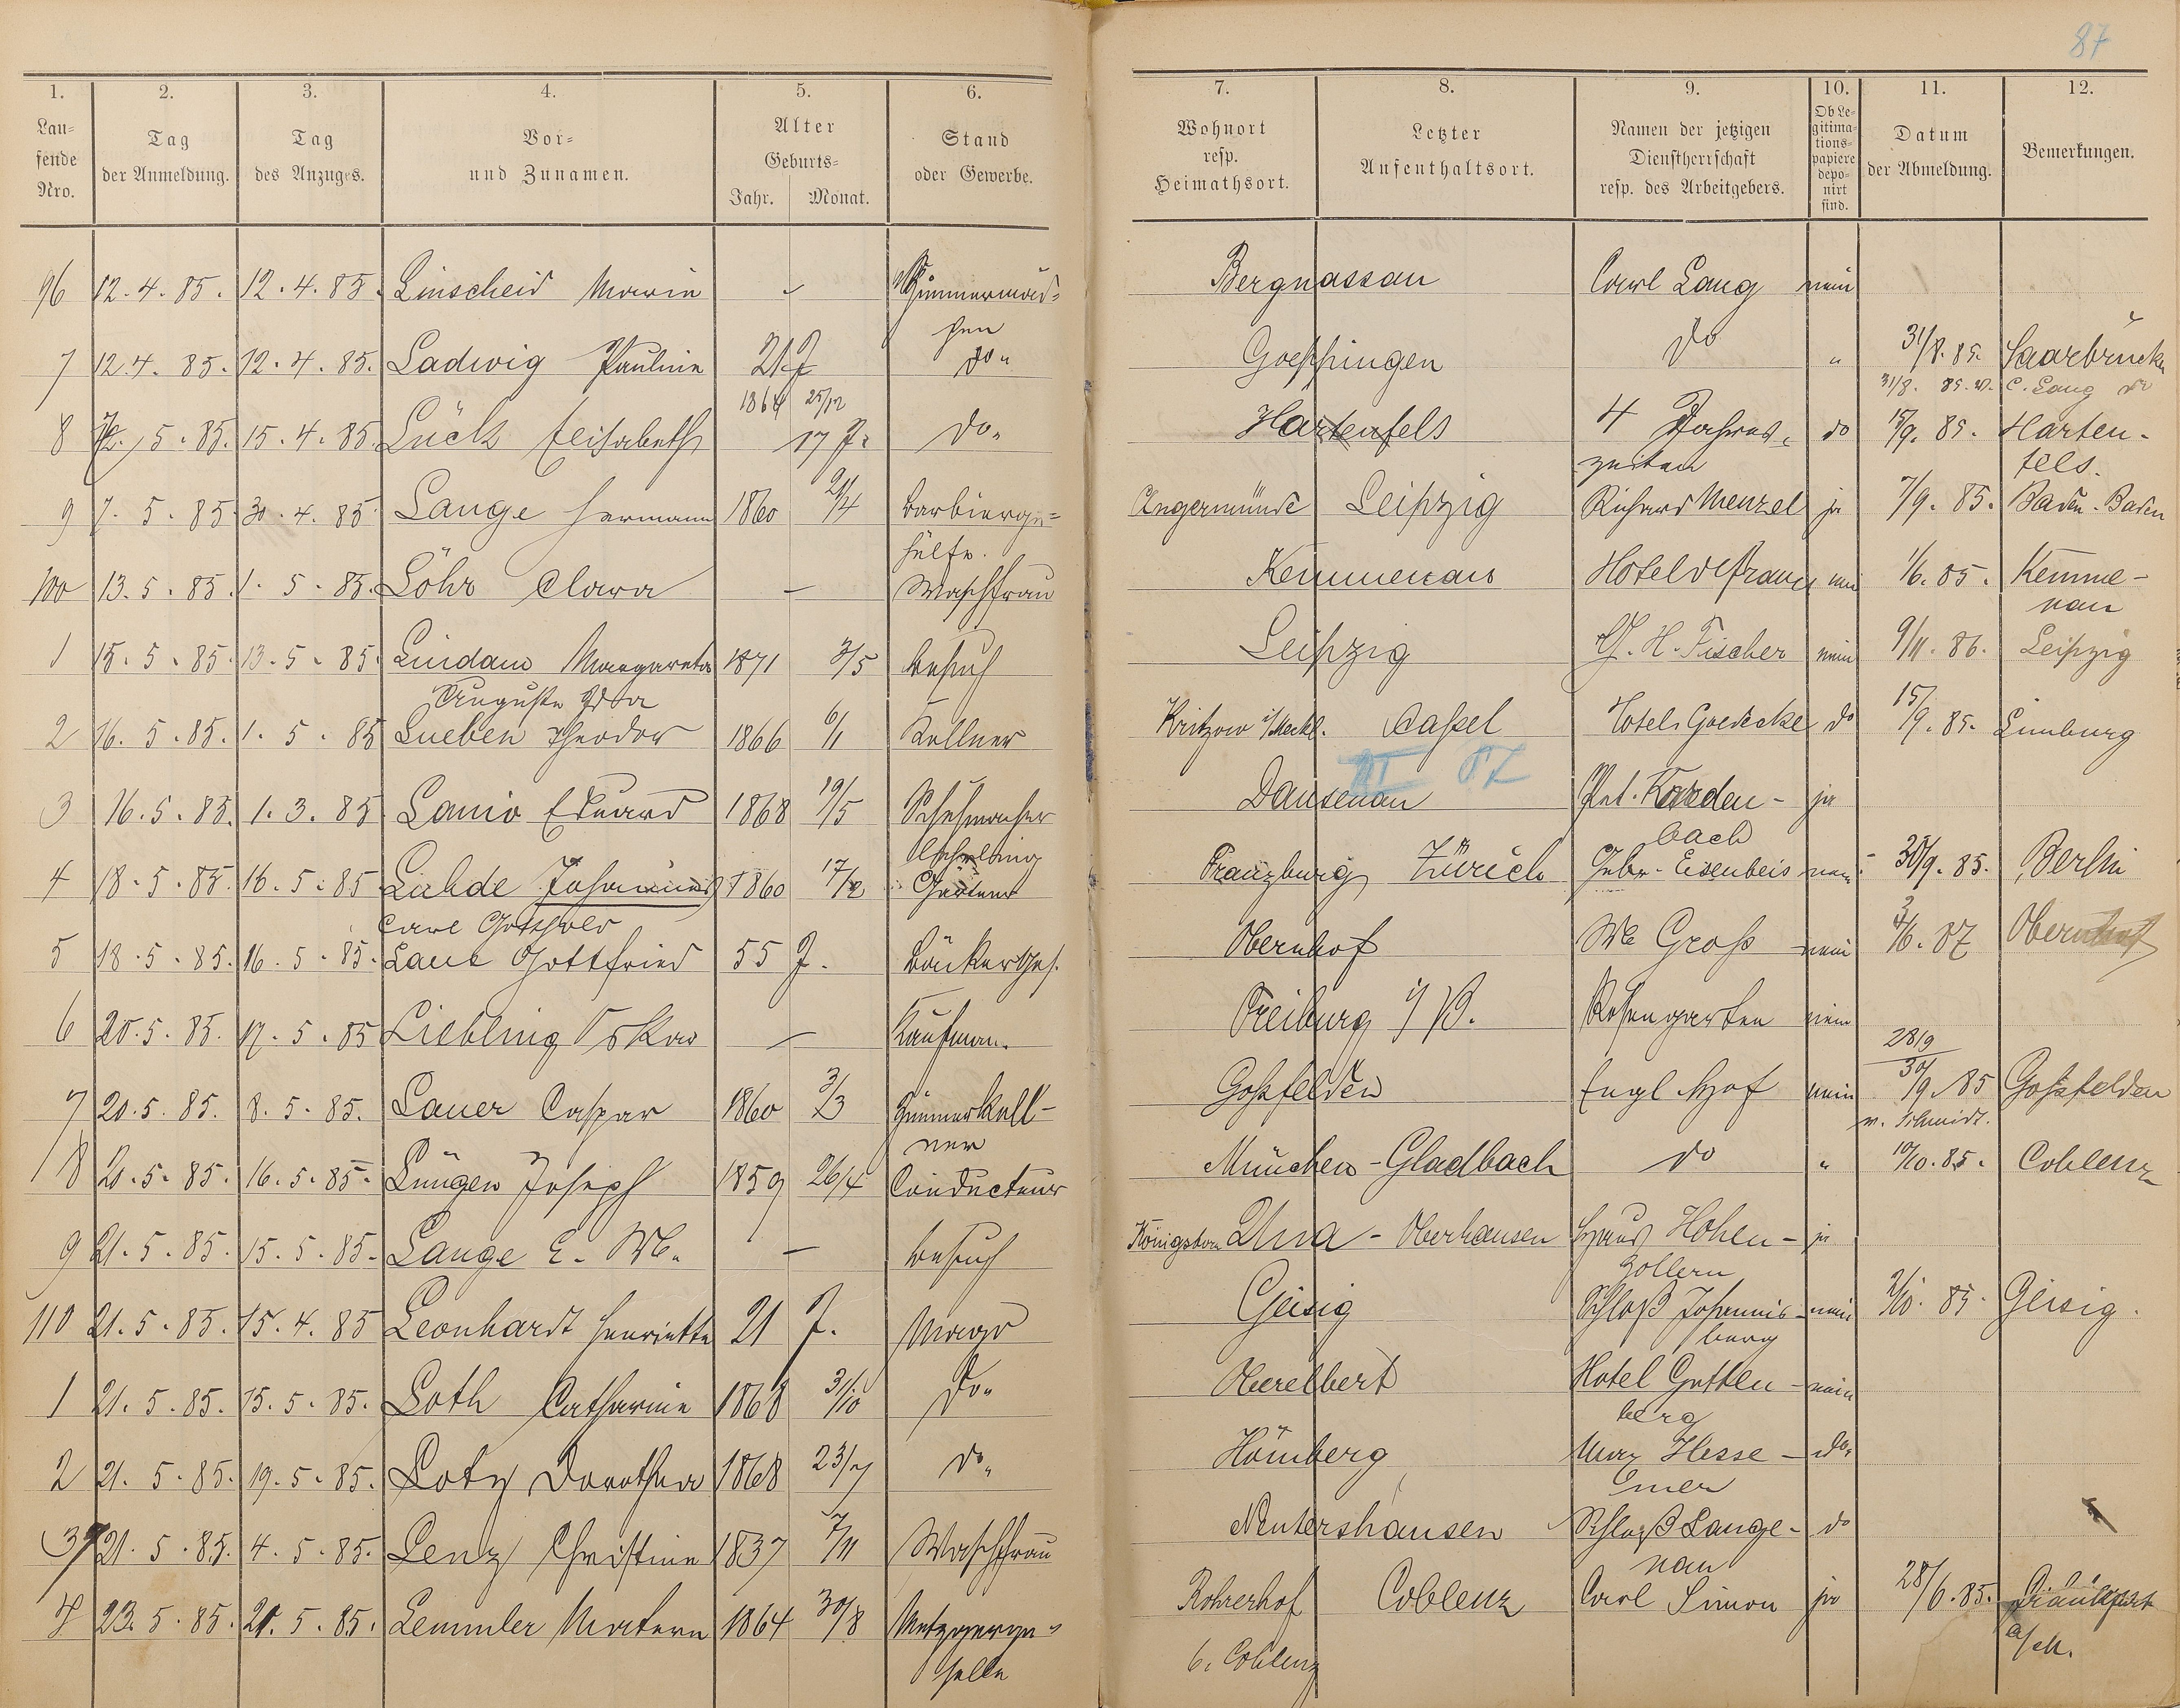 87
1. 2. 3. 4. 5. 6. 7. 8. 9. 10. 11. 12.
Lau-
fende
Nro.
Tag
der Anmeldung.
Tag
des Anzuges.
Vor-
und Zunamen.
Alter
Geburts-
Jahr. Monat.
Stand
oder Gewerbe.
Wohnort
resp.
Heimathsort.
Letzter
Aufenthaltsort.
Namen der jetzigen
Dienstherrschaft
resp. des Arbeitgebers.
Ob Le-
gitima-
tions-
papiere
depo-
nirt
sind.
Datum
der Abmeldung.
Bemerkungen.
96 12.4.85. 12.4.85. Linscheid Marie - Zimmermäd= Bergnassau Carl Lang nein
chen
7 12.4.85. 12.4.85. Ladwig Pauline 21 J do. Goeppingen do " 31/8.85. Saarbrücken
1864 25/12 31/8. 85. C. Lang do
8 5.85. 15.4.85. Lück Elisabeth 17 J. do. Hartenfels 4 Jahres- do 15/9.85. Harten-
zeiten fels.
9 7.5.85. 30.4.85. Lange Hermann 1860 21/4 Barbierge= Angermünde Leipzig Richard Menzel ja 7/9.85. Baden-Baden
hülfe.
100 13.5.85. 1.5.85. Löhr Clara - Waschfrau Kemmenau Hotel de France nein 1/6.85. Kemme-
nau
1 15.5.85. 13.5.85. Lindau Margareta 1871 3/5 Besuch Leipzig H. Fischer nein 9/11.86. Leipzig
Auguste Ida
2 16.5.85. 1.5.85 Lueben Theodor 1866 6/1 Kellner Kritzow i/Meckl. Cassel Hotel Goedecke do 15/9.85. Limburg
VI 87
3 16.5.85. 1.3.85 Lanio Eduard 1868 19/5 Schuhmacher Dausenau Pet. Kaden- ja
Lehrling bach
4 18.5.85. 16.5.85 Lahde Johannes 1860 17/2 Gärtner Franzburg Zürich Gebr. Eisenbeis nein 30/9.85. Berlin
Carl Gotthold
5 18.5.85. 16.5.85. Laux Gottfried 55 J. Bäckerges. Obernhof We Gross nein 3/6.87 Obernhof
6 20.5.85. 17.5.85 Liebling Oskar - Kaufmann. Freiburg i/B. Rosengarten nein
28/9
7 20.5.85. 8.5.85. Lauer Caspar 1860 3/3 Zimmerkell- Gossfelden Engl. Hof nein 30/9.85 Gossfelden
ner v. Schmidt.
8 20.5.85. 16.5.85. Lüngen Joseph 1859 26/4 Conducteur München-Gladbach do " 10/10.85. Coblenz
9 21.5.85. 15.5.85. Lange E. We. - Besuch Königsborn Unna - Oberhausen Haus Hohen- ja
zollern
110 21.5.85. 15.4.85 Leonhardt Henriette 21 J. Magd Geisig Schloß Johannis- nein 2/10.85. Geisig.
berg
1 21.5.85. 15.5.85. Loth Catharine 1868 31/10 do. Oberelbert Hotel Gutten- nein
berg
2 21.5.85. 19.5.85. Lotz Dorothea 1868 23/7 do. Hömberg Max Hesse- do.
Emer
3 21.5.85. 4.5.85. Lenz Christine 1837 7/11 Waschfrau Nentershausen Schloß Lange- do
nau
4 23.5.85. 21.5.85. Lemmler Matern 1864 30/8 Metzgerge= Rohrerhof Coblenz Carl Simon ja 28/6.85. Frankfurt
selle b. Coblenz a/M.